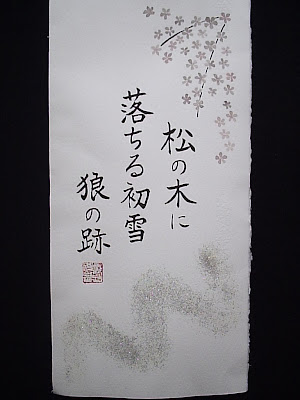 松の木に
落ちる初雪
狼の跡